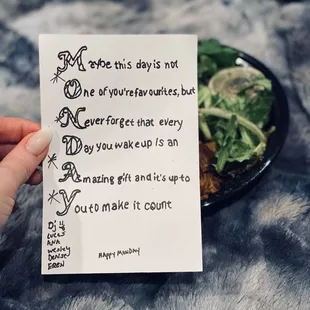 Maybe this day is not
One of you're favourites, but
Never forget that every
Day you wake up is an
Amazing gift and it's up to
You to make it count
ANA
Wesley
Denise
EREN
HAPPY MONDAY